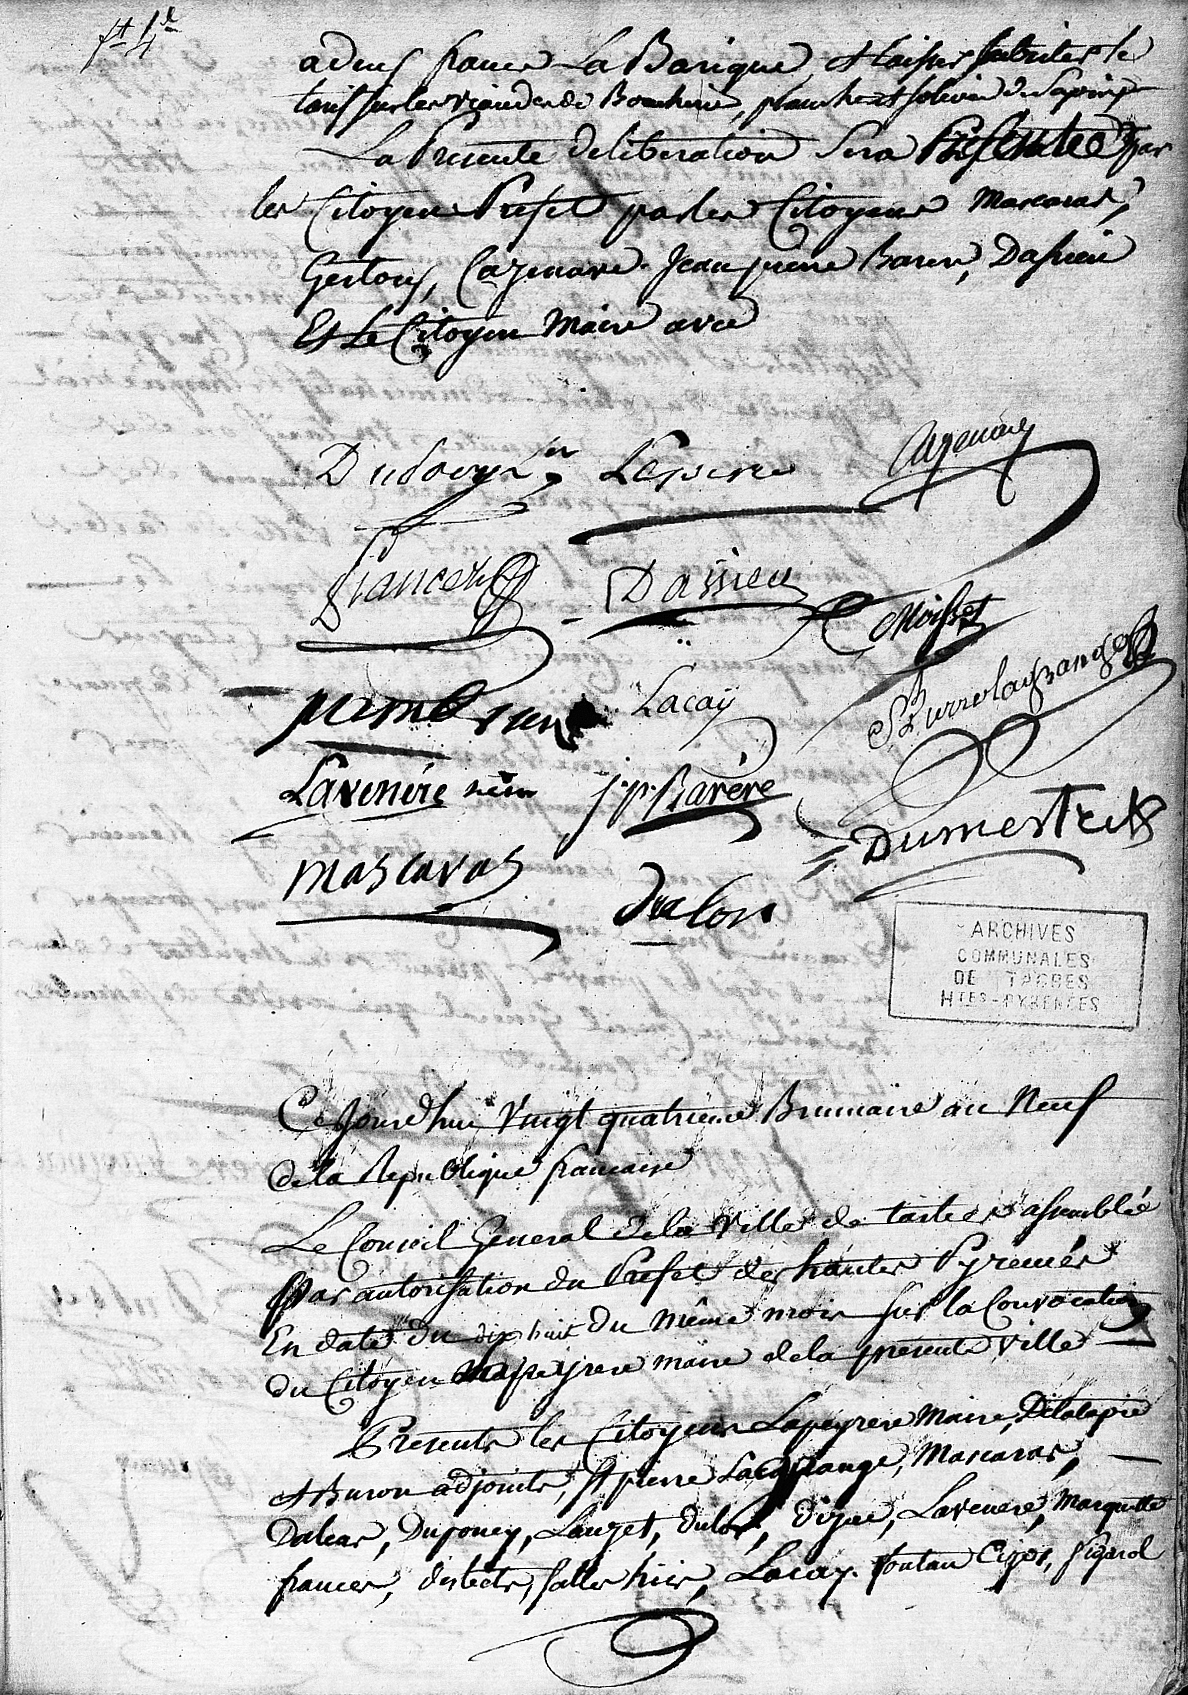 ft 4e
a deux francs La Barique, et laisser subsister le
tarif sur les viandes de Boucherie, planche et soliveau de Sapin
La Presente deliberation Sera Présentée par
les Citoyen Prefet par les Citoyens Mascaras,
Gertoux, Cazenave Jean pierre Barere, Dassieu
Et Le Citoyen Maire avec
Lespine Cazenave
Dassieu
Moisset
St Pierre lagrange
Lacay
Lavenére j. p. Barère
Dumestre
mascaras
dulon
ARCHIVES
COMMUNALES
DE TARBES
HTES-PYRÉNÉES
Ce Jourd'hui Vingt quatrieme Brumaire an Neuf
de la Republique francaise
Le Conseil General de la Ville de tarbes assemblée
par autorisation du Prefet des hautes Pyrenées
En date du dix huit du même mois sur la Convocation
du Citoyen Lapeyrere maire de la presente ville
Presents les Citoyens Lapeyrere Maire, Delalapie
et Buron adjoints, St pierre Lagrange, Mascaras,
Daleas, Dupouey, Lauzet, dulon, Lavenere, Marquette
frances, Lacay. foutan